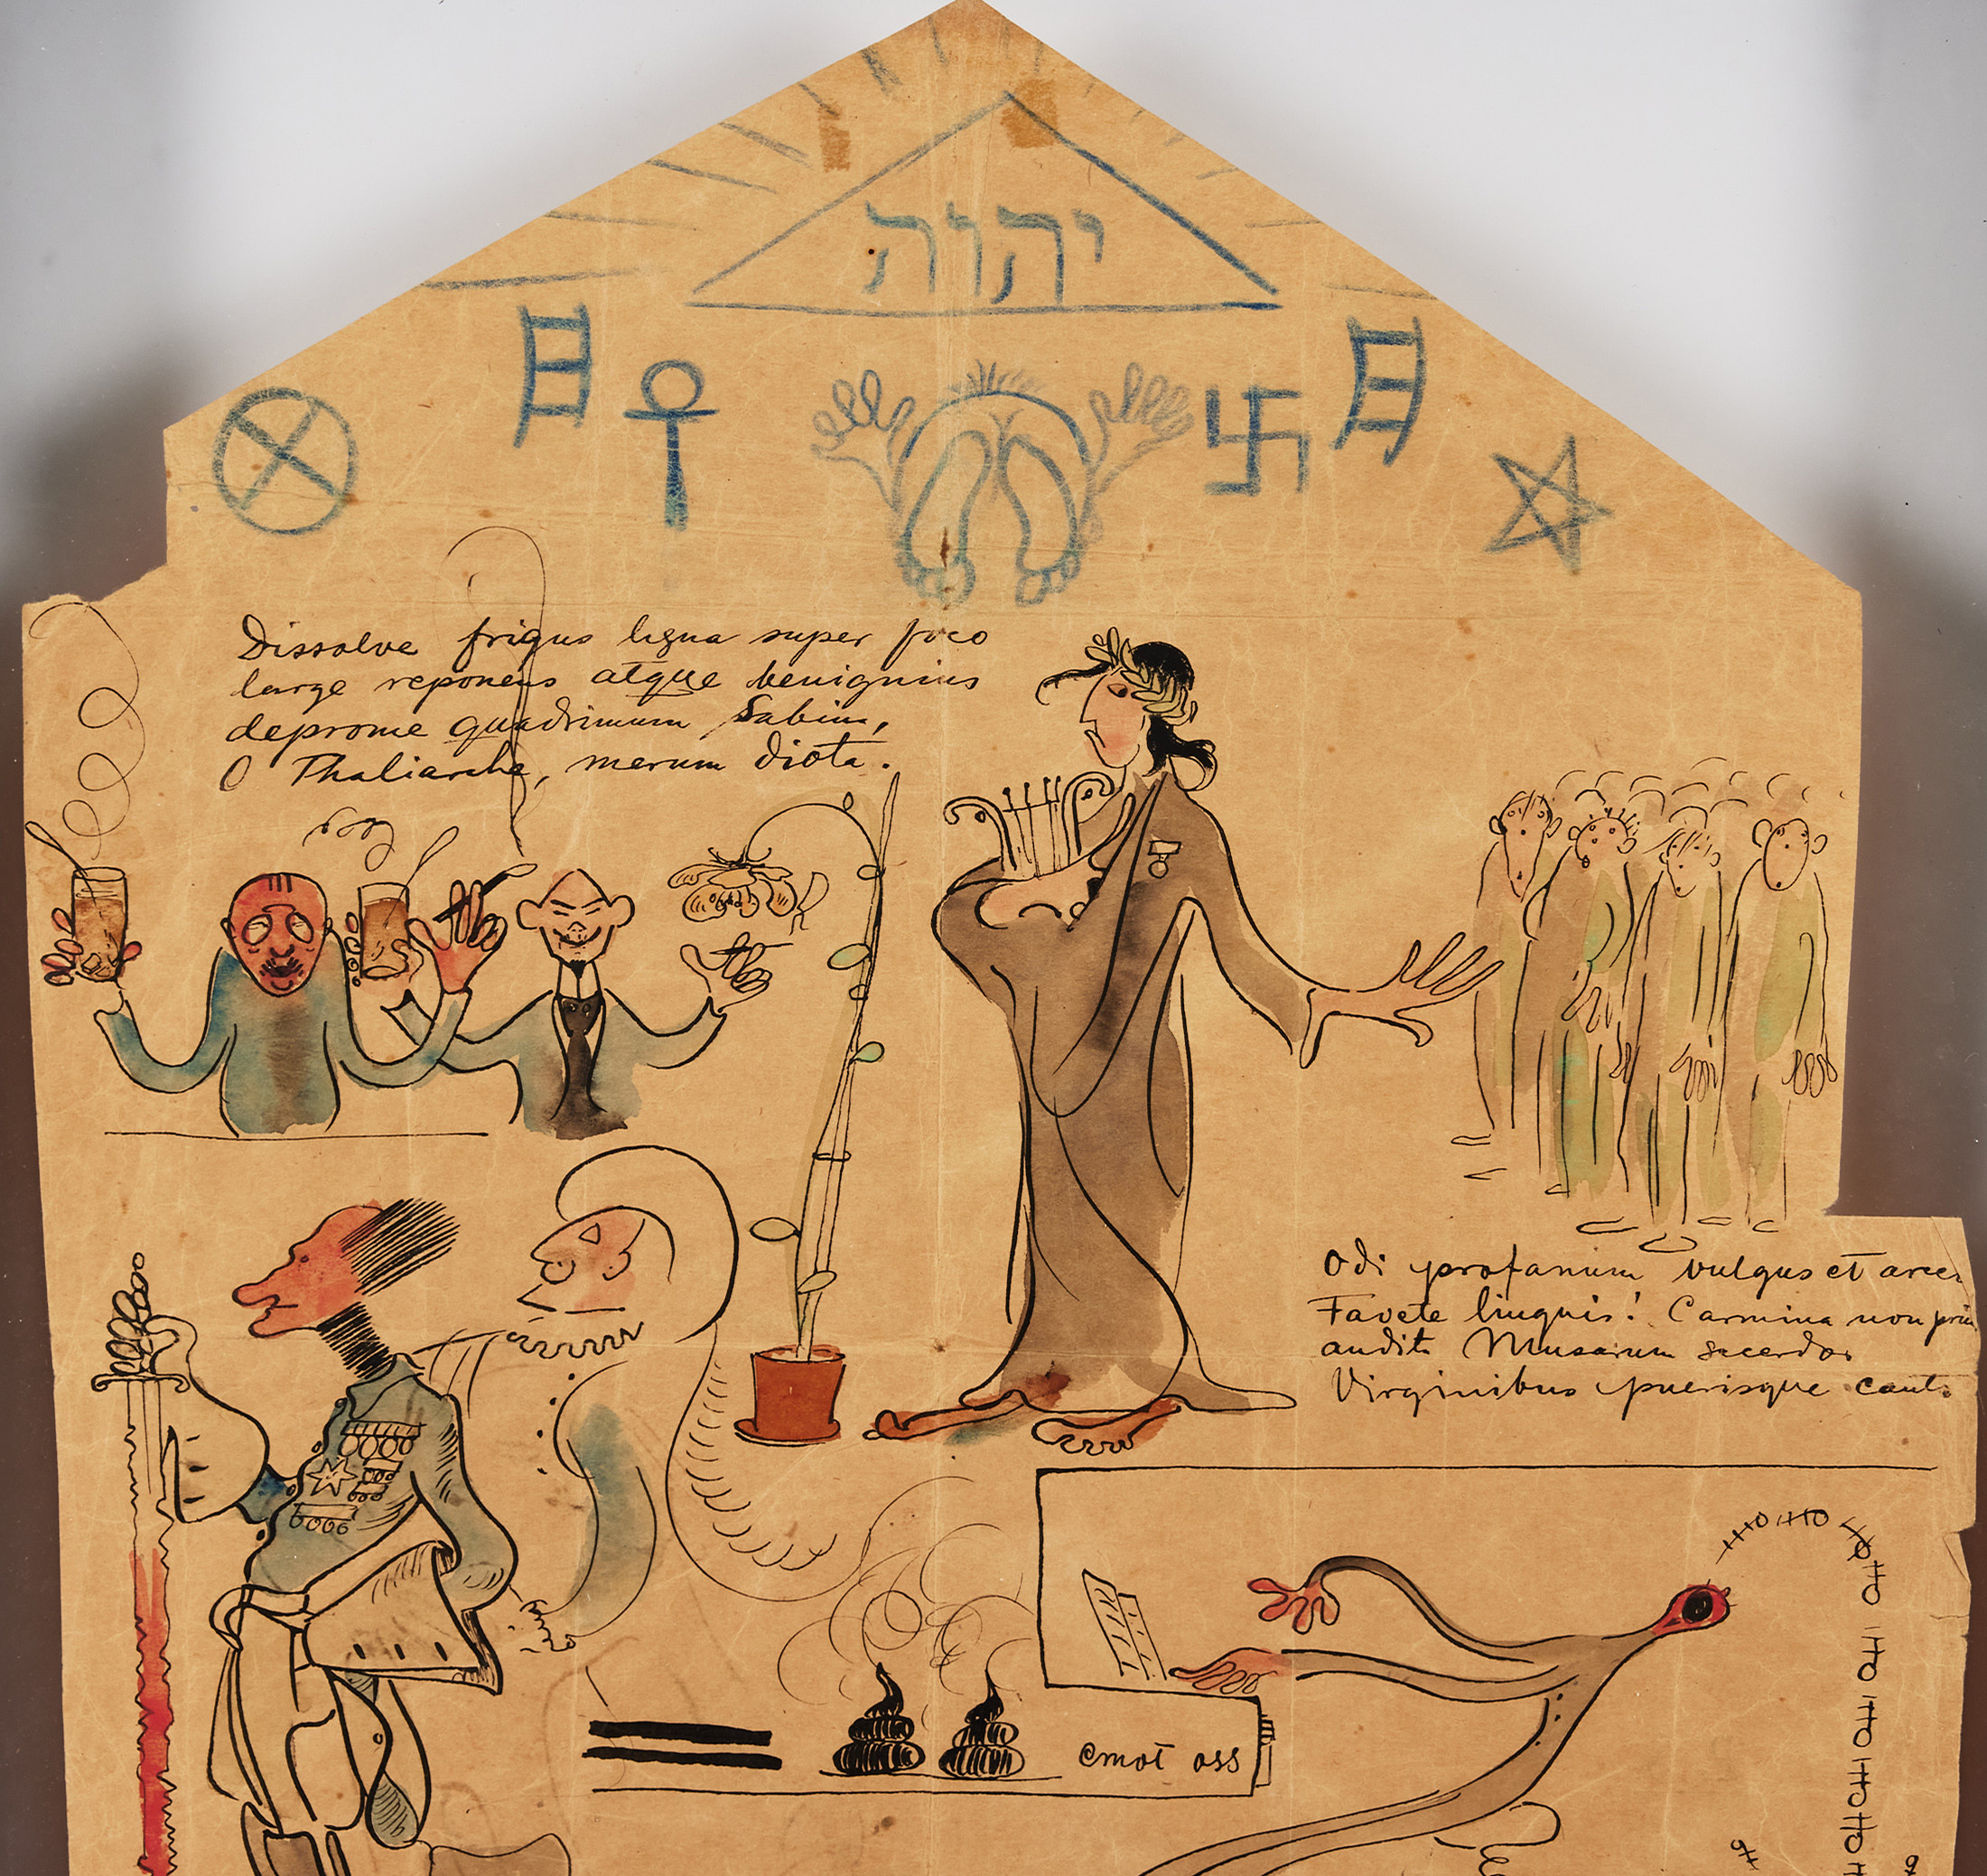 יהוה
Dissolve frigus ligna super foco
large reponens atque benignius
deprome quadrimum Sabina,
O Thaliarche, merum diota.
Odi profanum vulgus et arce
Favete linguis! Carmina non pri
audita Musarum sacerdos
Virginibus puerisque canto
emot oss